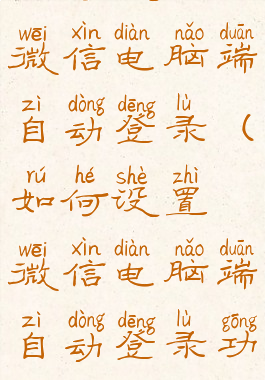 wēi xìn diàn nǎo duān
微信电脑端
zì dòng dēng lù
自动登录（
rú hé shè zhì
如何设置
wēi xìn diàn nǎo duān
微信电脑端
zì dòng dēng lù gōng
自动登录功